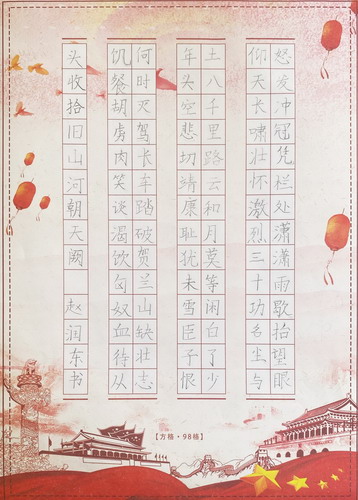 怒发冲冠凭栏处潇潇雨歇抬望眼
仰天长啸壮怀激烈三十功名尘与
土八千里路云和月莫等闲白了少
年头空悲切靖康耻犹未雪臣子恨
何时灭驾长车踏破贺兰山缺壮志
饥餐胡虏肉笑谈渴饮匈奴血待从
头收拾旧山河朝天阙 赵润东书
【方格·98格】